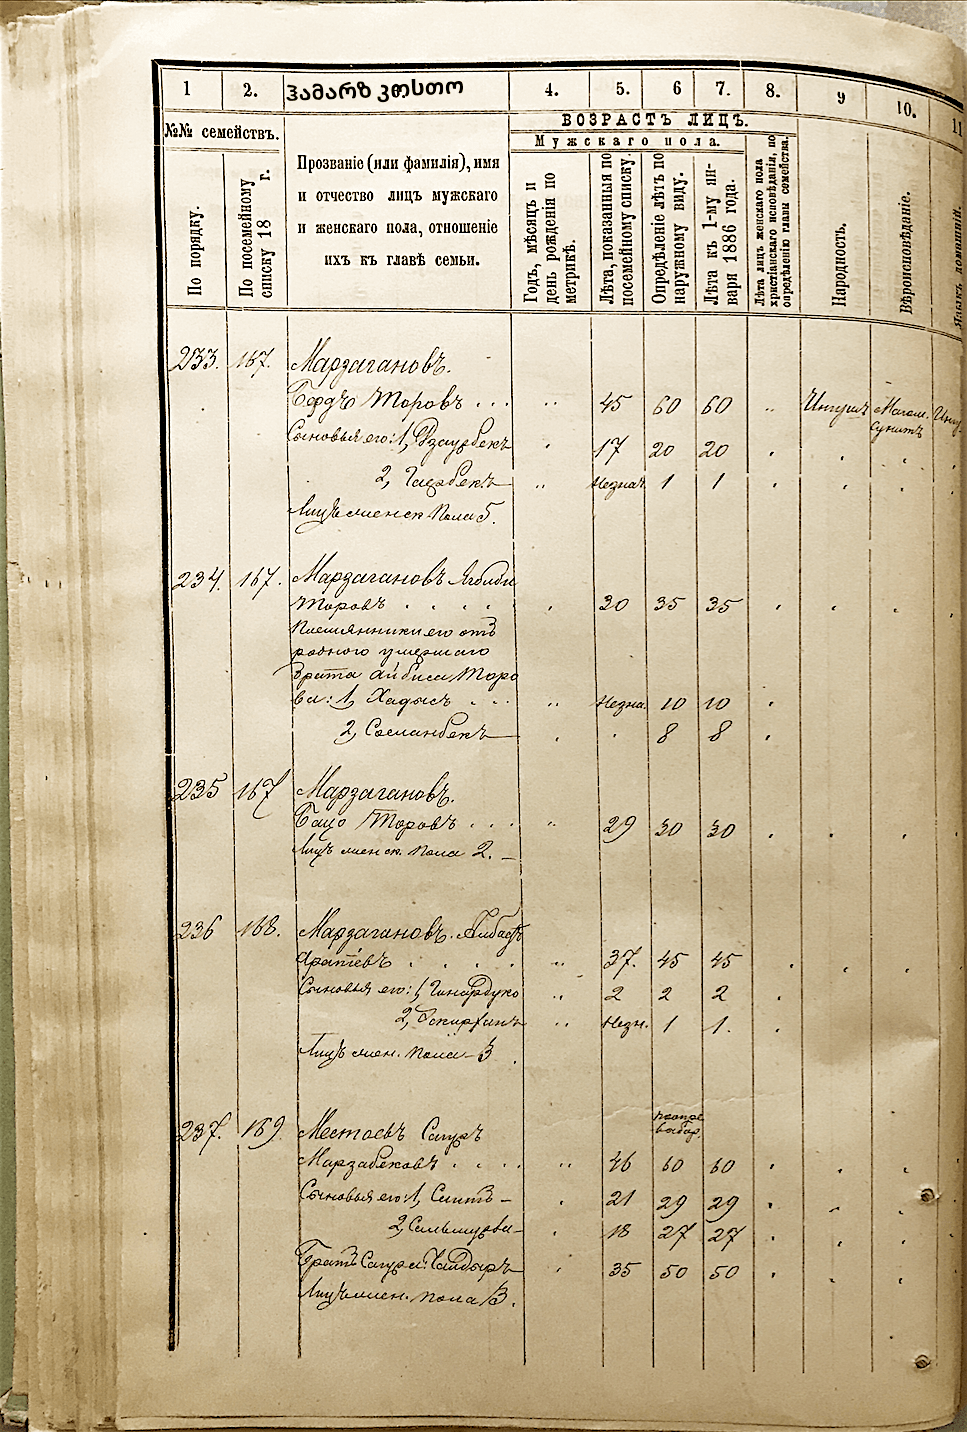 1 2. ჰამარზ კოსთო 4. 5. 6 7. 8. 9 10. 11
№№ семействъ.
По порядку.
По посемейному списку 18 г.
Прозваніе (или фамилія), имя
и отчество лицъ мужскаго
и женскаго пола, отношеніе
ихъ къ главѣ семьи.
ВОЗРАСТЪ ЛИЦЪ.
Мужскаго пола.
Годъ, мѣсяцъ и день рожденія по метрикѣ.
Лѣта, показанныя по посемейному списку.
Опредѣленіе лѣтъ по наружному виду.
Лѣта къ 1-му января 1886 года.
Лѣта лицъ женскаго пола христіанскаго исповѣданія, по опредѣленію главы семейства.
Народность.
Вѣроисповѣданіе.
Языкъ домашній.
233. 167. Марзагановъ.
Бердъ Торовъ . . . 45 60 60 Ингушъ Магом. Сунитъ Ингу-
Сыновья его: 1, Дзаурбекъ 17 20 20
2, Гаирбекъ Незнач 1 1
Лицъ женск. пола 5.
234. 167. Марзагановъ
Торовъ . . . . 30 35 35
Племянники его отъ
родного умершаго
брата Товбиси Торо
ва: 1, Хадысъ . . . Незна. 10 10
2, Сосланбекъ 8 8
235 167 Марзагановъ.
Бацо Торовъ . . . 29 30 30
Лицъ женск. пола 2. –
236 168. Марзагановъ.
. . . . 37. 45 45
Сыновья его: 1, 2 2 2
2, Незн. 1 1.
Лицъ жен. пола – 3
237. 169. Местоевъ Сауръ
Марзабековъ . . . . 46 60 60
Сыновья его: 1, – 21 29 29
2, Сальмурза – 18 27 27
Братъ Саура: 35 50 50
Лицъ жен. пола 3.